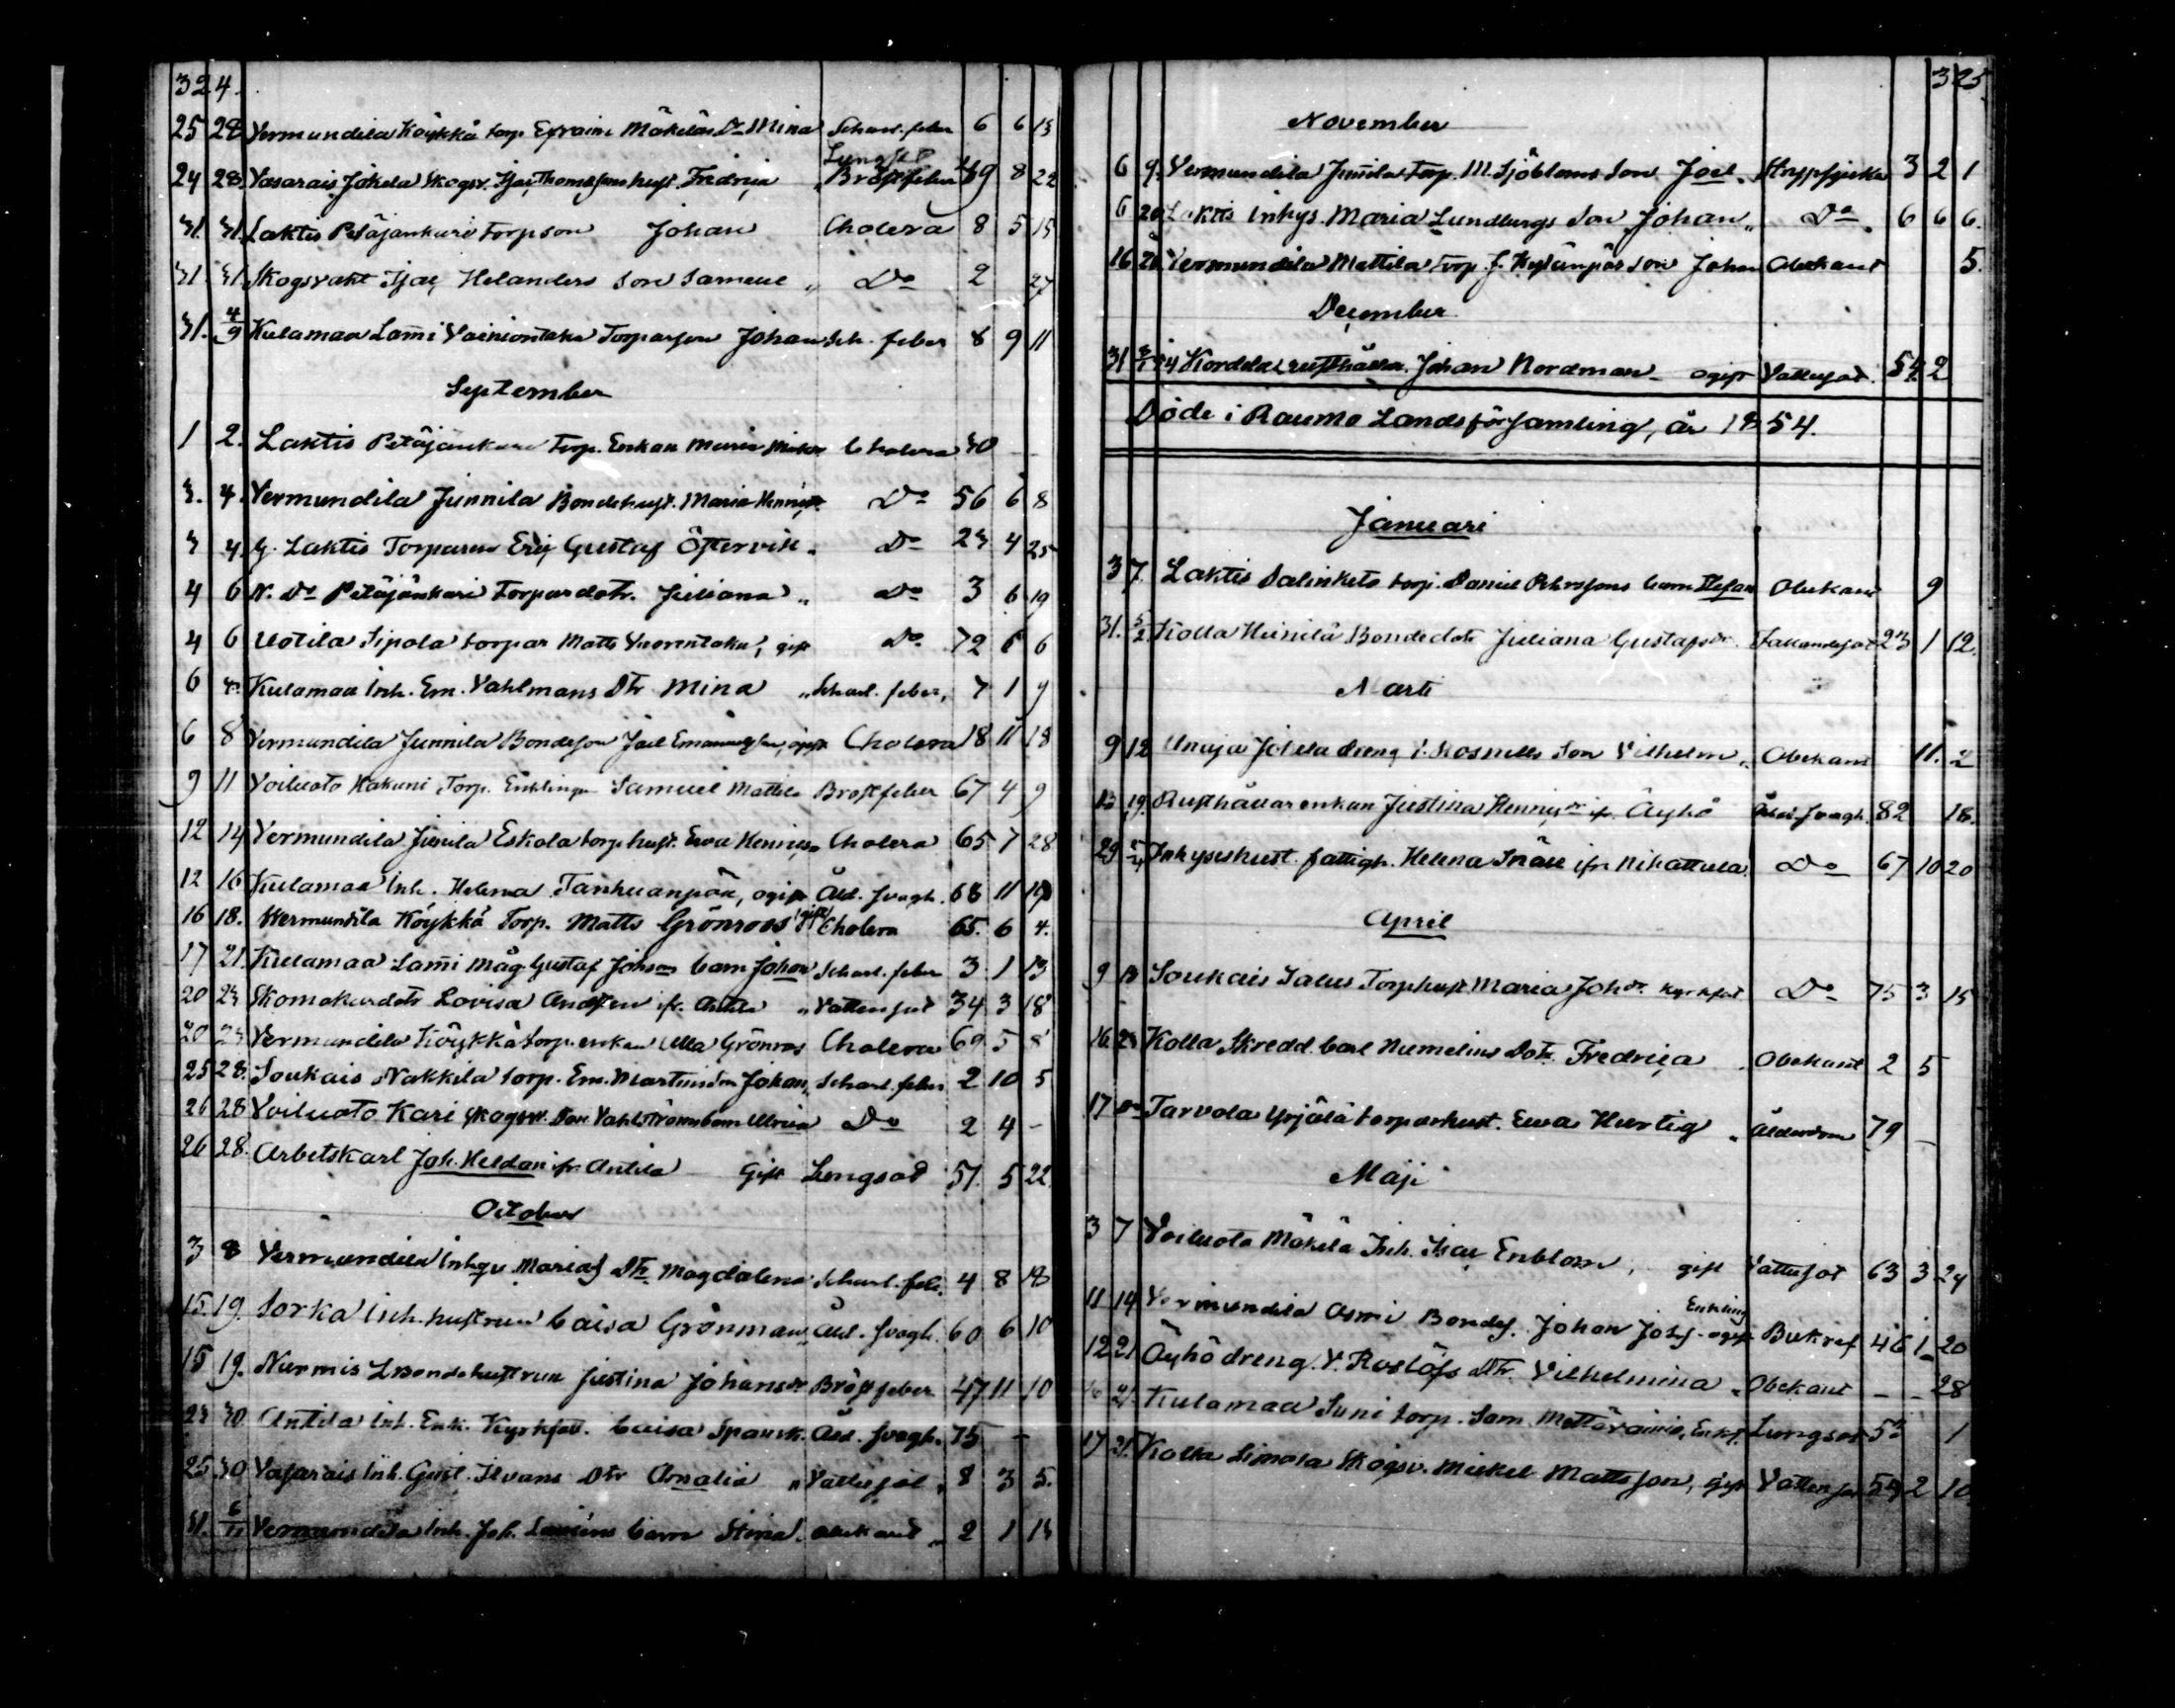 324.
25 28 Vermundila Köykkä torp Efraim Mäkeläs Dr Mina Scharl. feber 6 6 13
Lungsot
24 28. Vasarais Jokela Skogsv. Isac Thomassons hust. Fredrica Bröstfeber 49 8 22
31. 31. Laktis Petäjänkari torpson Johan Cholera 8 5 15
31. 31. Skogsvakt Isac Helanders Son Samuel " Do 2 27
31. 4/9 Kulamaa Lami Vainiontaka Torparson Johan Sch. feber 8 9 11
September
1 2. Laktis Petäjänkari Torp. Enkan Maria Cholera 40
3. 4. Vermundila Junnila Bondehust. Maria Henricsdr Do 56 6 8
3 4. G. Laktis Torparen Eric Gustaf Öftervik " Do 23 4 25
4 6 N. Do Petäjänkari Torpardotr. Juliana " Do 3 6 19
4 6 Uotila Sipola torpar Matts Vuorentaka, gift Do 72 6 6
6 8. Kulamaa Inh. Em. Vahlmans Dtr Mina " Scharl. feber, 7 1 9
6 8 Vermundila Junnila Bondeson Joel Emanuelson, ogift Cholera 18 11 18
9 11 Voiluoto Hakuni Torp. Enklingen Samuel Mattila Bröstfeber 67 4 9
12 14 Vermundila Junila Eskola torp. hust. Ewa Henricsdr Cholera 65 7 28
12 16 Kulamaa Inh. Helena Tanhuanpää, ogift Åld. svagh. 68 11 19
16 18. Wermundila Köykkä Torp. Matts Grönroos (gift) Cholera 65. 6 4.
17 21. Kulamaa Lami Måg. Gustaf Johsons barn Johan Scharl. feber 3 1 13
20 23 Skomakardotr Lovisa Andsten ifr. Antila " Vattensot 34 3 18
20 23 Vermundila Köykkä torp. enkan Ulla Grönroos Cholera 69 5 8
25 28. Soukais Nakkila torp. Em. Martins Son Johan " Scharl. feber 2 10 5
26 28 Voiluoto Kari Skogsv. Dav. Vahlströms barn Ulrica Do 2 4 -
26 28. Arbetskarl Joh. Heldan ifr. Antila Gift Lungsot 51. 5 22
October
3 8 Vermundila Inhys Marias Dtr Magdalena Scharl. feb. 4 8 13
15. 19. Sorka Inh. hustrun Caisa Grönman Åld. svagh. 60 6 10
15 19. Nurmis L Bondehustrun Justina Johansdr Bröstfeber 47 11 10
23 30 Antila Inh. Enk. Kyrkfatt. Caisa Spansk. Åld. svagh. 75 -
25. 30 Vasarais Inh. Gust. Ilvans Dtr Amalia " Vattusot " 8 3 5.
31. 6/11 Vermundila Inh. Joh. barn Stina obekant " 2 1 13
325.
November
6 9. Vermundila Junnila Torp. M. Sjöbloms Son Joel " Strypsjuka 3 2 1
6 20 Laktis Inhys. Maria Lundbergs Son Johan " Do " 6 6 6.
16 20 Vermundila Mattila torp. J. Kylänpää Son Johan Obekant 5.
December
31 Kordela rusthållar. Johan Nordman - ogift Vattusot. 54 2
Döde i Raumo Landsförsamling, år 1854.
Januari
3 7. Laktis Salinketo torp. Daniel Petterssons barn Stefan Obekant 9
31. 5/2. Kolla Heinilä Bondedotr Juliana Gustafsdr. Fallandesot 23 1 12.
Marti
9 12 Unaja Jokela dreng V. Rosnells Son Vilhelm " Obekant 11. 2
13 19. Rusthållarenkan Justina Henricsdr ifr. Äyhö Ålders svagh. 82 18.
29 2/4 Inhyseshust. fattigh. Helena Snäll ifr. Nihattula. Do 67 10 20
April
9 13 Soukais Salus Torphust. Maria Johsdr. Kyrkfat Do 75 3 15
16 23 Kolla Skredd. Carl Numelins Dotr Fredrica " Obekant 2 5
17 Do Tarvola Yrjälä torparhust. Ewa Hurtig " Ålderdom 79 -
Maji
3 7 Voiluoto Mäkelä Inh. Isac Enblom, gift Vattusot 63 3 24
Enkling
11 14 Vermundila Osmi Bondes. Johan Josefs. ogift Bukref 46 1 20
12 21 Äyhö dreng. V. Roslöfs Dtr. Vilhelmina " Obekant - - 28
16 21. Kulamaa Suni torp. Sam. Mattsson, Enkl. Lungsot 53 1
17 21. Kolla Simola Skogsv. Mickel Mattsson, gift Vattensot 59 2 10.